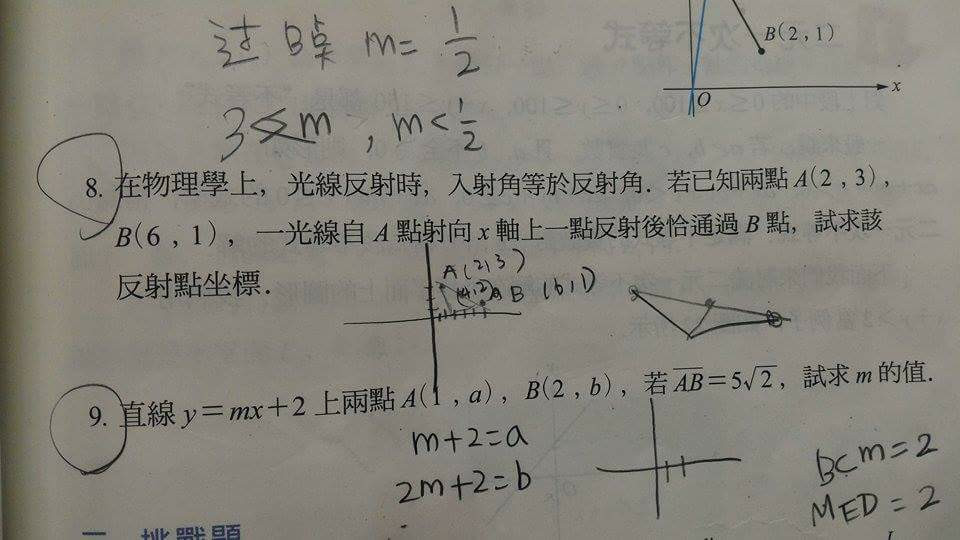 过B点 m=1/2
B(2,1)
O
x
3≤m , m<1/2
8. 在物理學上，光線反射時，入射角等於反射角．若已知兩點A(2，3)，
B(6，1)，一光線自A點射向x軸上一點反射後恰通過B點，試求該
反射點坐標．
A(2,3)
(4,2)
B (6,1)
9. 直線y=mx+2上兩點A(1，a)，B(2，b)，若AB=5√2，試求m的值．
m+2=a
2m+2=b
m=2
MED=2
挑戰題